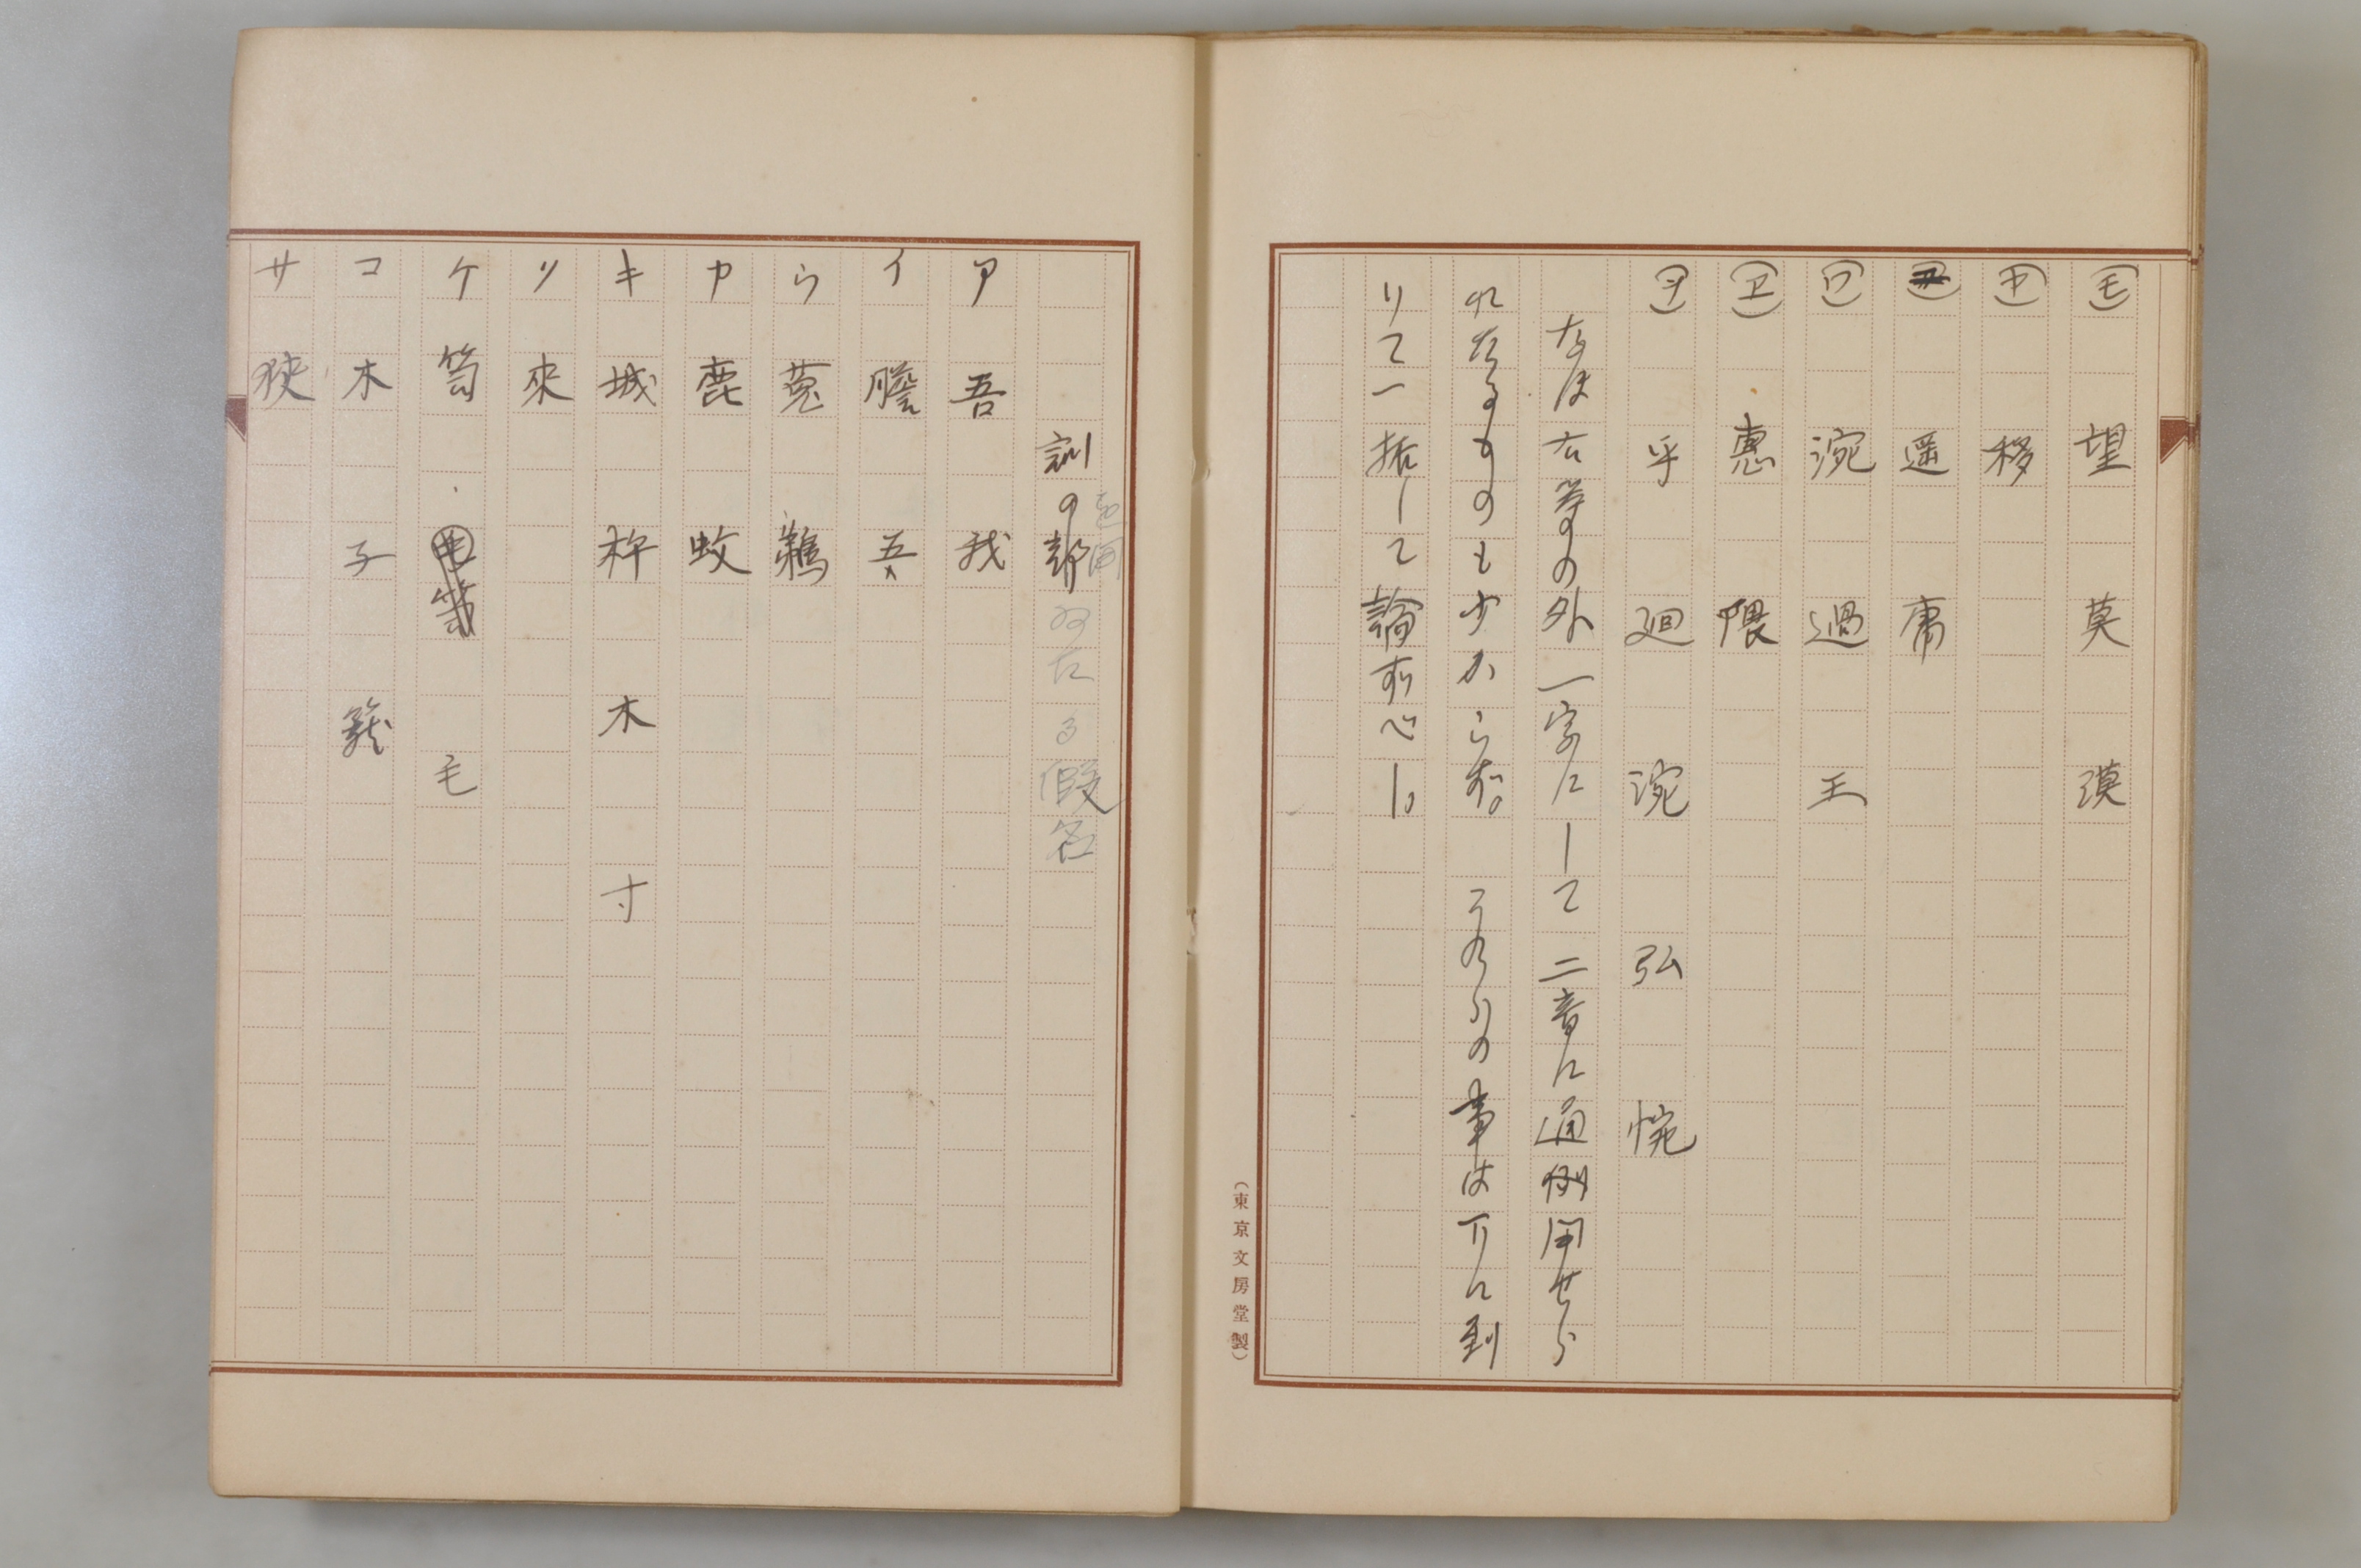 (モ) 望 莫 漠
(ヤ) 移
(ヨ) 遥 庸
(ワ) 涴 過 王
(ヱ) 惠 隈
(ヲ) 乎 廻 涴 弘 惋
なほ右等の外一字にして二音に通例用せら
れたるものも少からず。 それらの事は下に到
りて一括して論ずべし。
(東京文房堂製)
訓の 假名
ア 吾 我
イ 膽 五
ウ 菟 鵜
カ 鹿 蚊
キ 城 杵 木 寸
ク 來
ケ 笥 毛
コ 木 子 籠
サ 狹